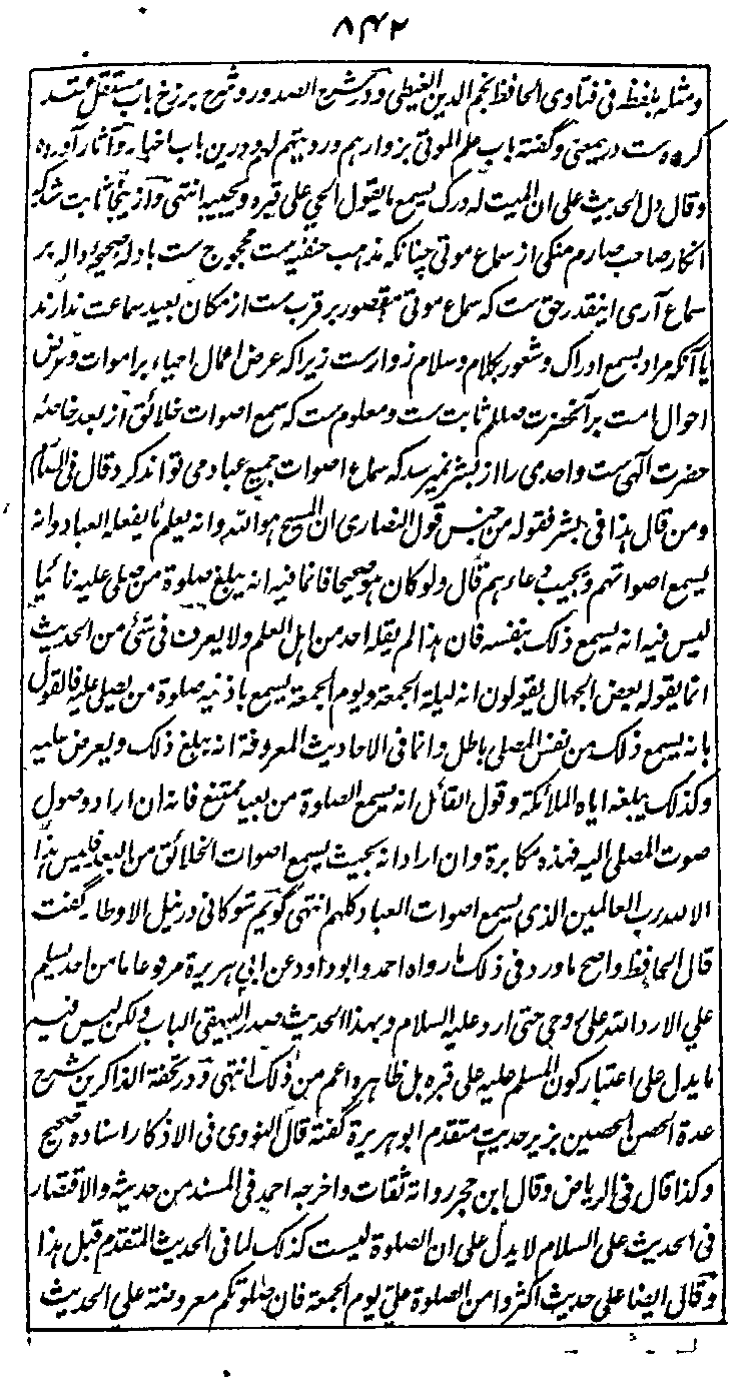 ۸۴۲
ومثله بلفظه فی فتاوی الحافظ نجم الدین الغیطی ودر شرح الصدور و شرح برزخ باب مستقل منعقد
کرده ست درینمعنی و گفته باب علم الموتی بزوارهم ورویتهم لهم ودرین باب اخبار و آثار آورده
وقال دل الحدیث علی ان المیت له درک یسمع ما یقول الحی علی قبره ویجیبه انتهی و ازینجا ثابت شد که
انکار صاحب صارم منکی از سماع موتی چنانکه مذهب حنفیه ست محجوج ست بادله صحیحه داله بر
سماع آری اینقدر حق ست که سماع موتی مقصور بر قرب ست از مکان بعید سماعت ندارند
یا آنکه مراد بسمع ادراک و شعور بکلام وسلام زوار ست زیرا که عرض اعمال احیاء بر اموات و عرض
احوال امت بر آنحضرت صلعم ثابت ست ومعلوم ست که سمع اصوات خلائق از بعد خاصهٔ
حضرت الٰهی ست واحدی را از بشر نمیرسد که سماع اصوات جمیع عباد می تواند کرد قال فی الصارم
ومن قال هذا فی بشر فقوله من جنس قول النصاری ان المسیح هو الله وانه یعلم ما یفعله العباد وانه
یسمع اصواتهم ویجیب دعاءهم قال ولو کان هو صحیحا فانما فیه انه یبلغ صلوة من صلی علیه نائیا
لیس فیه انه یسمع ذلک بنفسه فان هذا لم یقله احد من اهل العلم ولا یعرف فی شئ من الحدیث
انما یقوله بعض الجهال یقولون انه لیلة الجمعة ویوم الجمعة یسمع باذنیه صلوة من یصلی علیه فالقول
بانه یسمع ذلک من نفس المصلی باطل وانما فی الاحادیث المعروفة انه یبلغ ذلک ویعرض علیه
وکذلک یبلغه ایاه الملائکة وقول القائل انه یسمع الصلوة من بعید ممتنع فانه ان اراد وصول
صوت المصلی الیه فهذه مکابرة وان اراد انه بحیث یسمع اصوات الخلائق من البعد فلیس هذا
الا لله رب العالمین الذی یسمع اصوات العباد کلهم انتهی گویم شوکانی در نیل الاوطار گفت
قال الحافظ واصح ما ورد فی ذلک ما رواه احمد وابو داود عن ابی هریرة مرفوعا ما من احد یسلم
علی الا رد الله علی روحی حتی ارد علیه السلام وبهذا الحدیث صدر البیهقی الباب ولکن لیس فیه
ما یدل علی اعتبار کون المسلم علیه علی قبره بل ظاهره اعم من ذلک انتهی و در تحفة الذاکرین شرح
عدة الحصن الحصین بزیر حدیث متقدم ابو هریرة گفته قال النووی فی الاذکار اسناده صحیح
وکذا قال فی الریاض وقال ابن حجر رواته ثقات واخرجه احمد فی المسند من حدیثه والاقتصار
فی الحدیث علی السلام لا یدل علی ان الصلوة لیست کذلک لما فی الحدیث المتقدم قبل هذا
وقال ایضا علی حدیث اکثروا من الصلوة علیّ یوم الجمعة فان صلوتکم معروضة علی الحدیث